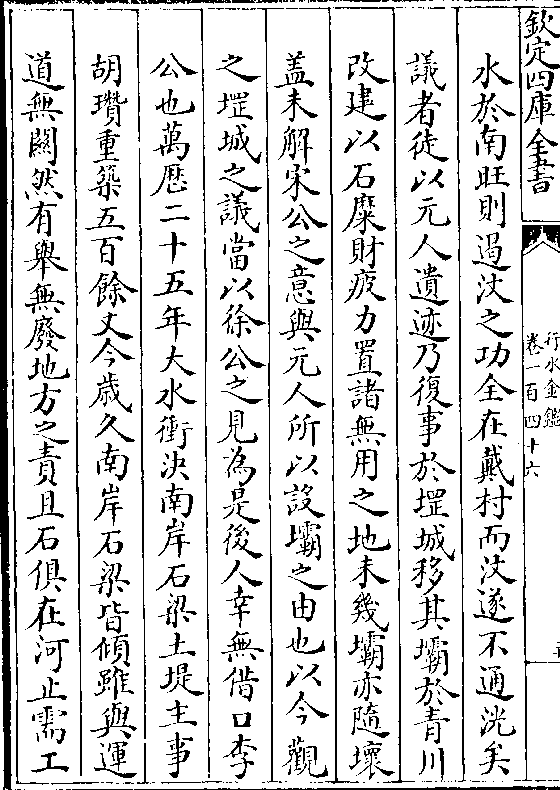 欽定四庫全書
行水金鑑
卷一百四十六
水於南旺則遏汶之功全在戴村而汶遂不通洸矣
議者徒以元人遺迹乃復事於堽城移其壩於青川
改建以石糜財疲力置諸無用之地未幾壩亦隨壞
蓋未解宋公之意與元人所以設壩之由也以今觀
之堽城之議當以徐公之見為是後人幸無借口李
公也萬厯二十五年大水衝決南岸石梁土堤主事
胡瓚重築五百餘丈今歲久南岸石梁皆傾雖與運
道無關然有舉無廢地方之責且石俱在河止需工